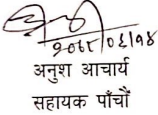 २०७८/०६/१४
अनुश आचार्य
सहायक पाँचौं